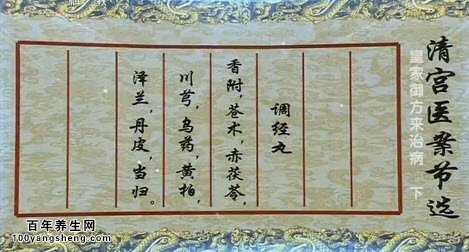 清宫医案节选
皇家御方来治病 下
调经丸
香附，苍术，赤茯苓，
川芎，乌药，黄柏，
泽兰，丹皮，当归。
百年养生网
100yangsheng.com